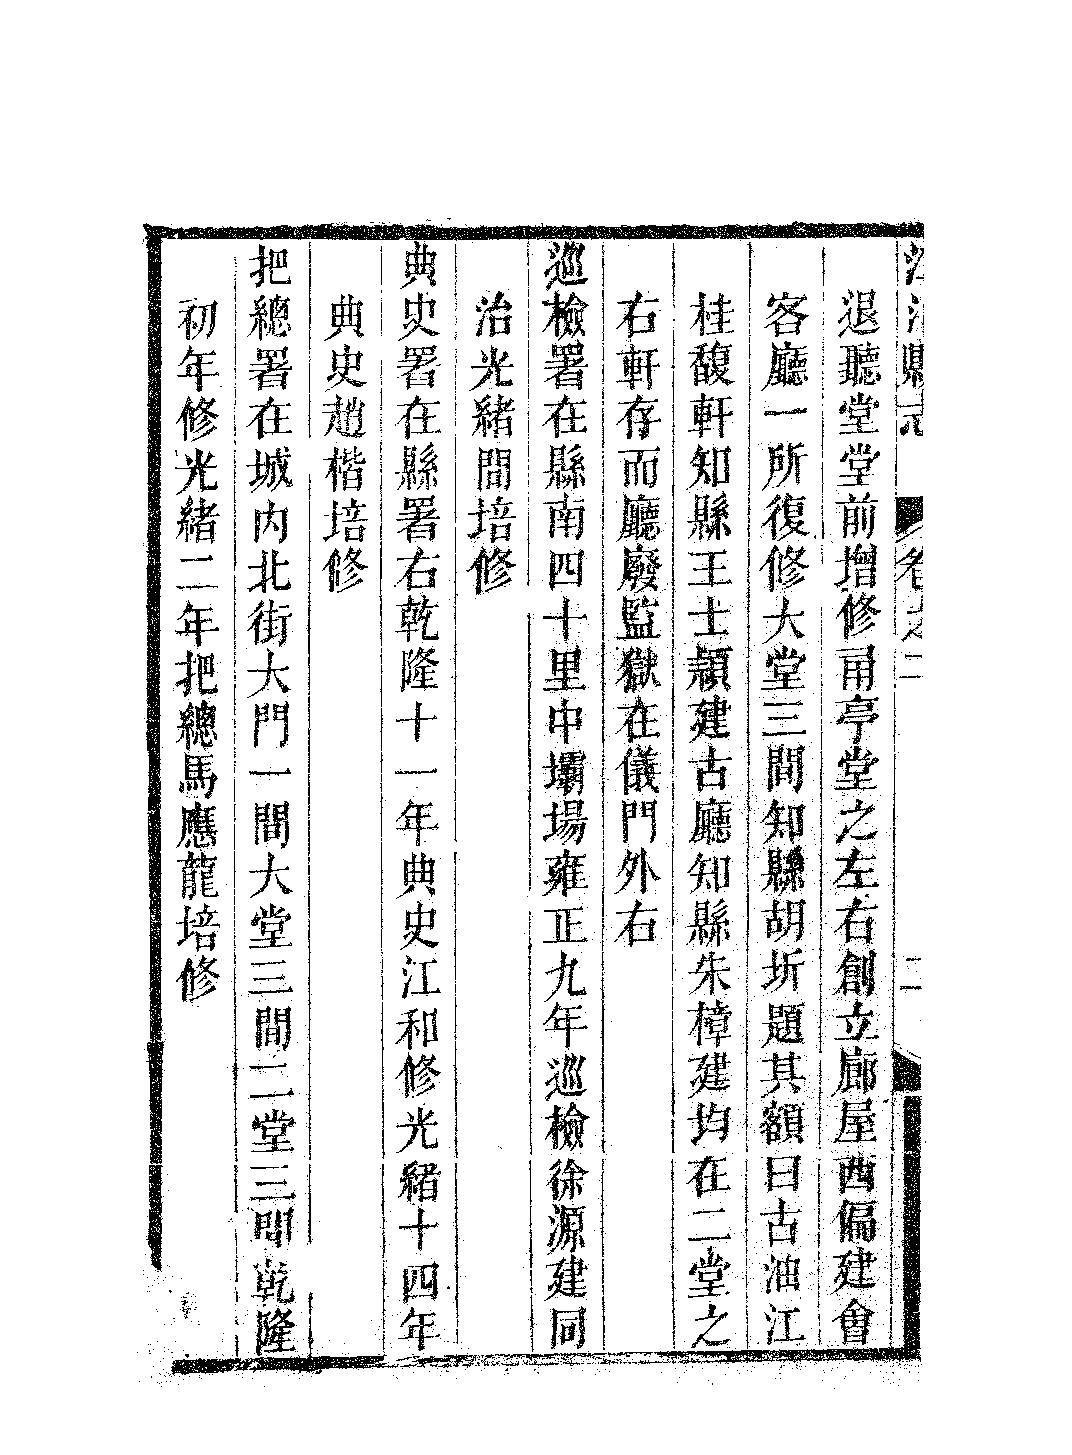 縣志 卷之二 二
退聽堂堂前增修甬亭堂之左右創立廊屋西偏建會
客廳一所復修大堂三間知縣胡圻題其額曰古油江
桂馥軒知縣王士顈建古廳知縣朱樟建均在二堂之
右軒存而廳廢監獄在儀門外右
巡檢署在縣南四十里中壩場雍正九年巡檢徐源建同
治光緒間培修
典史署在縣署右乾隆十一年典史江和修光緒十四年
典史趙楷培修
把總署在城內北街大門一間大堂三間二堂三間乾隆
初年修光緒二年把總馬應龍培修